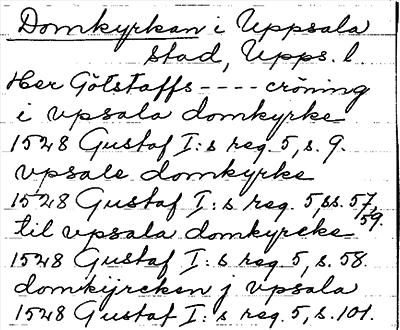 Domkyrkan i Uppsala
stad, Upps. l.
Her Götstaffs ---- cröning
i vpsala domkyrke
1528 Gustaf I:s reg. 5, s. 9.
vpsale domkyrke
1528 Gustaf I:s reg. 5, ss. 57, 59.
til vpsala domkyrcke
1528 Gustaf I:s reg 5, s. 58.
domkijrcken j vpsala
1528 Gustaf I:s reg. 5, s. 101.